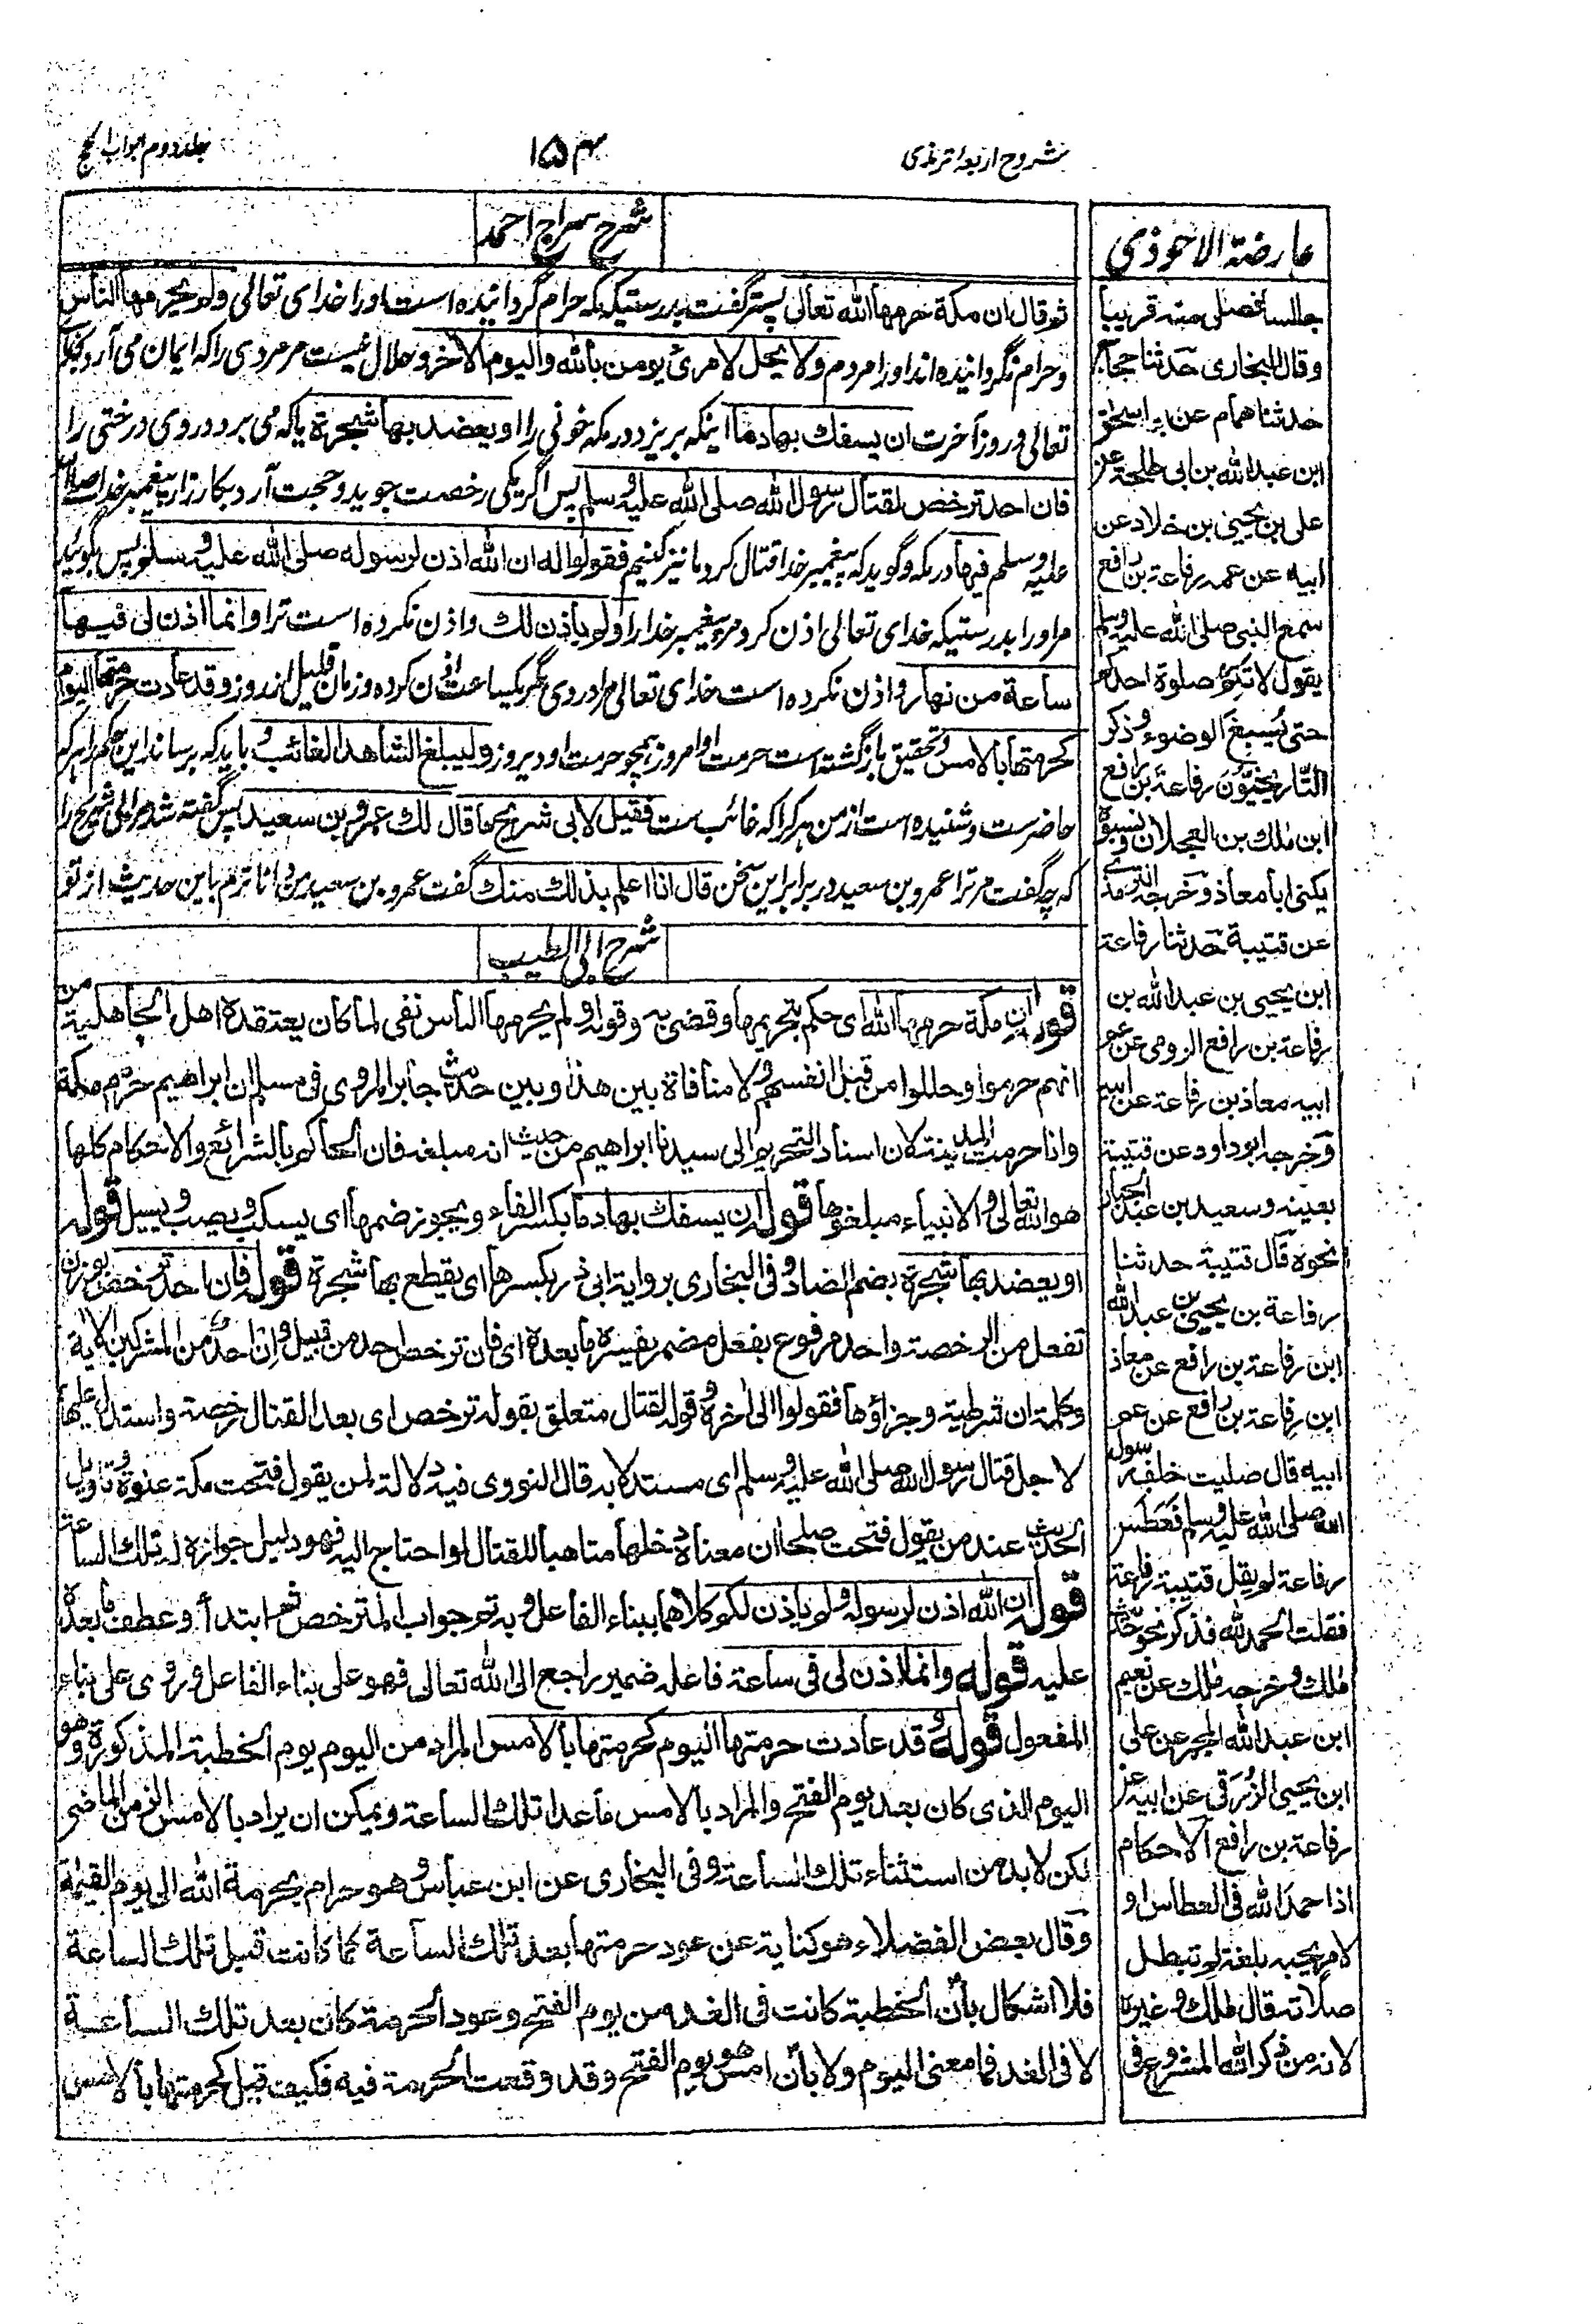 شروح اربعہ ترمذی
۱۵۴
جلد دوم ابواب الحج
عارضة الاحوذی
جالسا فصلى منه قريبا
وقال البخاری حدثنا حجاج
حدثنا همام عن اسحق
ابن عبد الله بن ابی طلحة عن
علی بن يحيی بن خلاد عن
ابيه عن عمه رفاعة بن رافع
سمع النبی صلى الله عليه وسلم
يقول لا تتم صلوة احدكم
حتى يُسبغ الوضوء وذكر
التاريخيّون رفاعة بن رافع
ابن ملك بن العجلان
يكنى ابا معاذ وخرجه الترمذی
عن قتيبة حدثنا رفاعة
ابن يحيى بن عبد الله بن
رفاعة بن رافع الزرقی عن عم
ابيه معاذ بن رفاعة عن ابيه
وخرجه ابو داود عن قتيبة
بعينه وسعيد بن عبد الجبار
نحوه قال قتيبة حدثنا
رفاعة بن يحيى بن عبد الله
ابن رفاعة بن رافع عن معاذ
ابن رفاعة بن رافع عن عم
ابيه قال صليت خلف رسول
الله صلى الله عليه وسلم فعَطَس
رفاعة لم يقل قتيبة رفاعة
فقلت الحمد لله فذكر نحو حديث
ملك وخرجه ملك عن نعيم
ابن عبد الله المجمر عن علی
ابن يحيى الزُرقی عن ابيه عن
رفاعة بن رافع الاحكام
اذا حمد الله فی العطاس او
لامر يجبه بلغة لم تبطل
صلاته قال ملك وغيره
لانه من ذكر الله المشروع فی
شرح سراج احمد
ثم قال ان مكة حرمها الله تعالى پستر گفت بدرستیکہ مکہ حرام گردانیدہ است او را خدای تعالی ولم يحرمها الناس
وحرام نگردانیدہ اند او را مردم ولا يحل لامرئ يومن بالله واليوم الآخر وحلال نیست مر مردی را کہ ایمان می آرد بخدای
تعالی و روز آخرت ان يسفك بها دما اینکہ بریزد در مکہ خونی را او يعضد بها شجرة یا کہ می برد در وی درختی را
فان احد ترخص لقتال رسول الله صلى الله عليه وسلم پس اگر یکی رخصت جوید وحجت آرد بکارزار پیغمبر خدا صلی الله
علیہ وسلم فيها در مکہ وگوید کہ پیغمبر خدا قتال کرد ما نیز کنیم فقولوا له ان الله اذن لرسوله صلى الله عليه وسلم پس بگوئید
مر او را بدرستیکہ خدای تعالی اذن کرد مر پیغمبر خدا را ولم يأذن لك واذن نکردہ است ترا وانما اذن لی فيها
ساعة من نهار واذن نکردہ است خدای تعالی مرا در وی مگر یکساعت اذن کردہ وزمان قلیل از روز وقد عادت حرمتها اليوم
كحرمتها بالامس وتحقیق بازگشتہ است حرمت او امروز ہمچو حرمت او دیروز وليبلغ الشاهد الغائب و باید کہ برساند این حکم را ہر کہ
حاضرست و شنیدہ است از من ہر کرا کہ غائب ست فقيل لابی شريح ما قال لك عمرو بن سعيد پس گفته شد مر ابی شریح را
کہ چہ گفت مر ترا عمرو بن سعید در برابر این سخن قال انا اعلم بذلك منك گفت عمرو بن سعید من دانا ترم باین حدیث از تو
شرح ابی الطيب
قوله ان مكة حرمها الله ای حكم بتحريمها وقضى به وقوله ولم يحرمها الناس نفی لما كان يعتقده اهل الجاهلية من
انهم حرموا وحللوا من قبل انفسهم ولا منافاة بين هذا وبين حديث جابر المروی فی مسلم ان ابراهيم حرّم مكة
وانا حرمت المدينة لان اسناد التحريم الى سيدنا ابراهيم من حيث انه مبلغه فان الحاكم بالشرائع والاحكام كلها
هو الله تعالى والانبياء مبلغوها قوله ان يسفك بها دما بكسر الفاء ويجوز ضمها ای يسكب ويصب ويسيل قوله
او يعضد بها شجرة بضم الضاد وفی البخاری برواية ابی ذر بكسرها ای يقطع بها شجرة قوله فان احد ترخص بوزن
تفعل من الرخصة واحد مرفوع بفعل مضمر يفسره ما بعده ای فان ترخص احد من قبيل وان احد من المشركين الاية
وكلمة ان شرطية وجزاؤها فقولوا الى اخره وقوله لقتال متعلق بقوله ترخص ای بعد القتال رخصة واستدل عليها
لاجل قتال رسول الله صلى الله عليه وسلم ای مستدلا به قال النووی فيه دلالة لمن يقول فتحت مكة عنوة وتاويل
الحديث عند من يقول فتحت صلحا ان معناه دخلها متاهبا للقتال لو احتاج اليه فهو دليل جوازه له تلك الساعة
قوله ان الله اذن لرسوله ولم ياذن لكم كلاهما ببناء الفاعل وبه تم جواب المترخص ثم ابتدأ وعطف ما بعده
عليه قوله وانما اذن لی فی ساعة فاعله ضمير راجع الى الله تعالى فهو على بناء الفاعل وروی على بناء
المفعول قوله وقد عادت حرمتها اليوم كحرمتها بالامس المراد من اليوم يوم الخطبة المذكورة وهو
اليوم الذی كان بعد يوم الفتح والمراد بالامس ما عدا تلك الساعة ويمكن ان يراد بالامس الزمن الماضی
لكن لا بد من استثناء تلك الساعة وفی البخاری عن ابن عباس وهو حرام بحرمة الله الى يوم القيمة
وقال بعض الفضلاء هو كناية عن عود حرمتها بعد تلك الساعة كما كانت قبل تلك الساعة
فلا اشكال بأن الخطبة كانت فی الغد من يوم الفتح وعود الحرمة كان بعد تلك الساعة
لا فی الغد فما معنى اليوم ولا بأن امس هو يوم الفتح وقد وقعت الحرمة فيه فكيف قيل كحرمتها بالامس